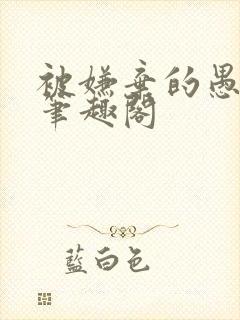 被嫌弃的愚
笔趣阁
蓝白色